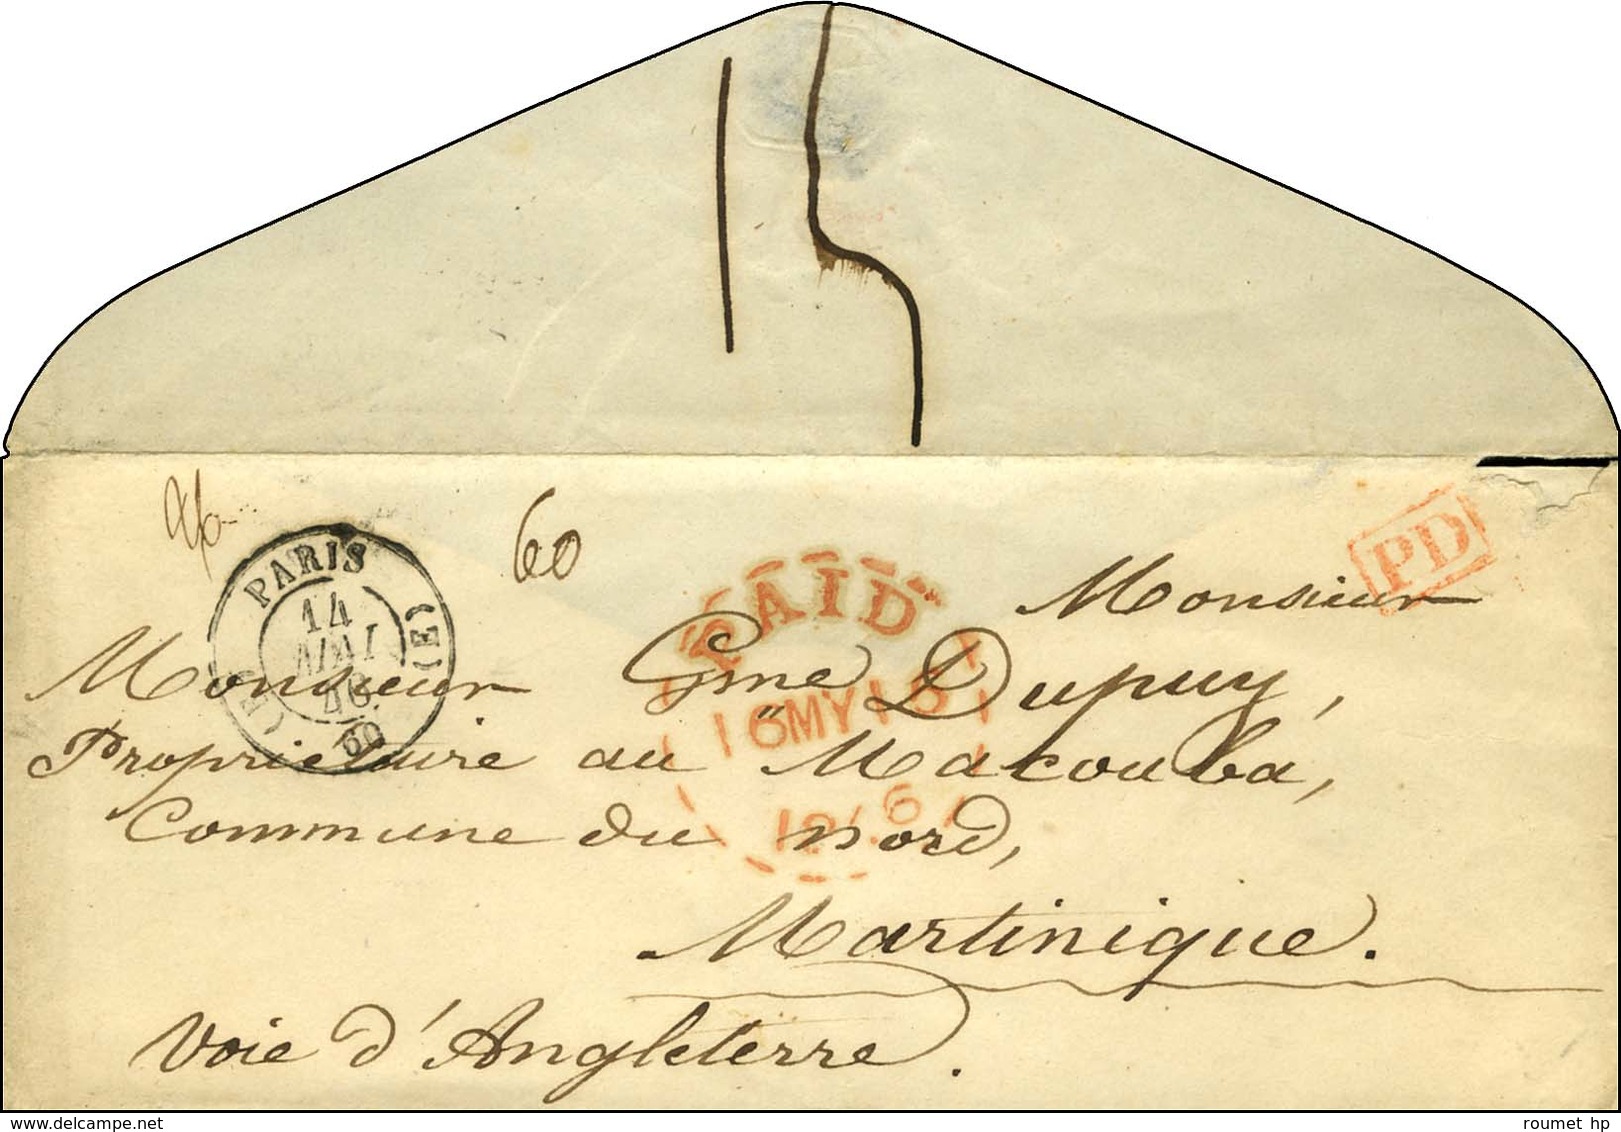 15
60
PD
PARIS
14
MAI
46
(E)
60
PAID
16MY16
1846
Monsieur
Monsieur Gme Dupuy,
Propriétaire au Macouba,
Commune du nord,
Martinique.
Voie d'Angleterre.
www.delcampe.net
roumet hp